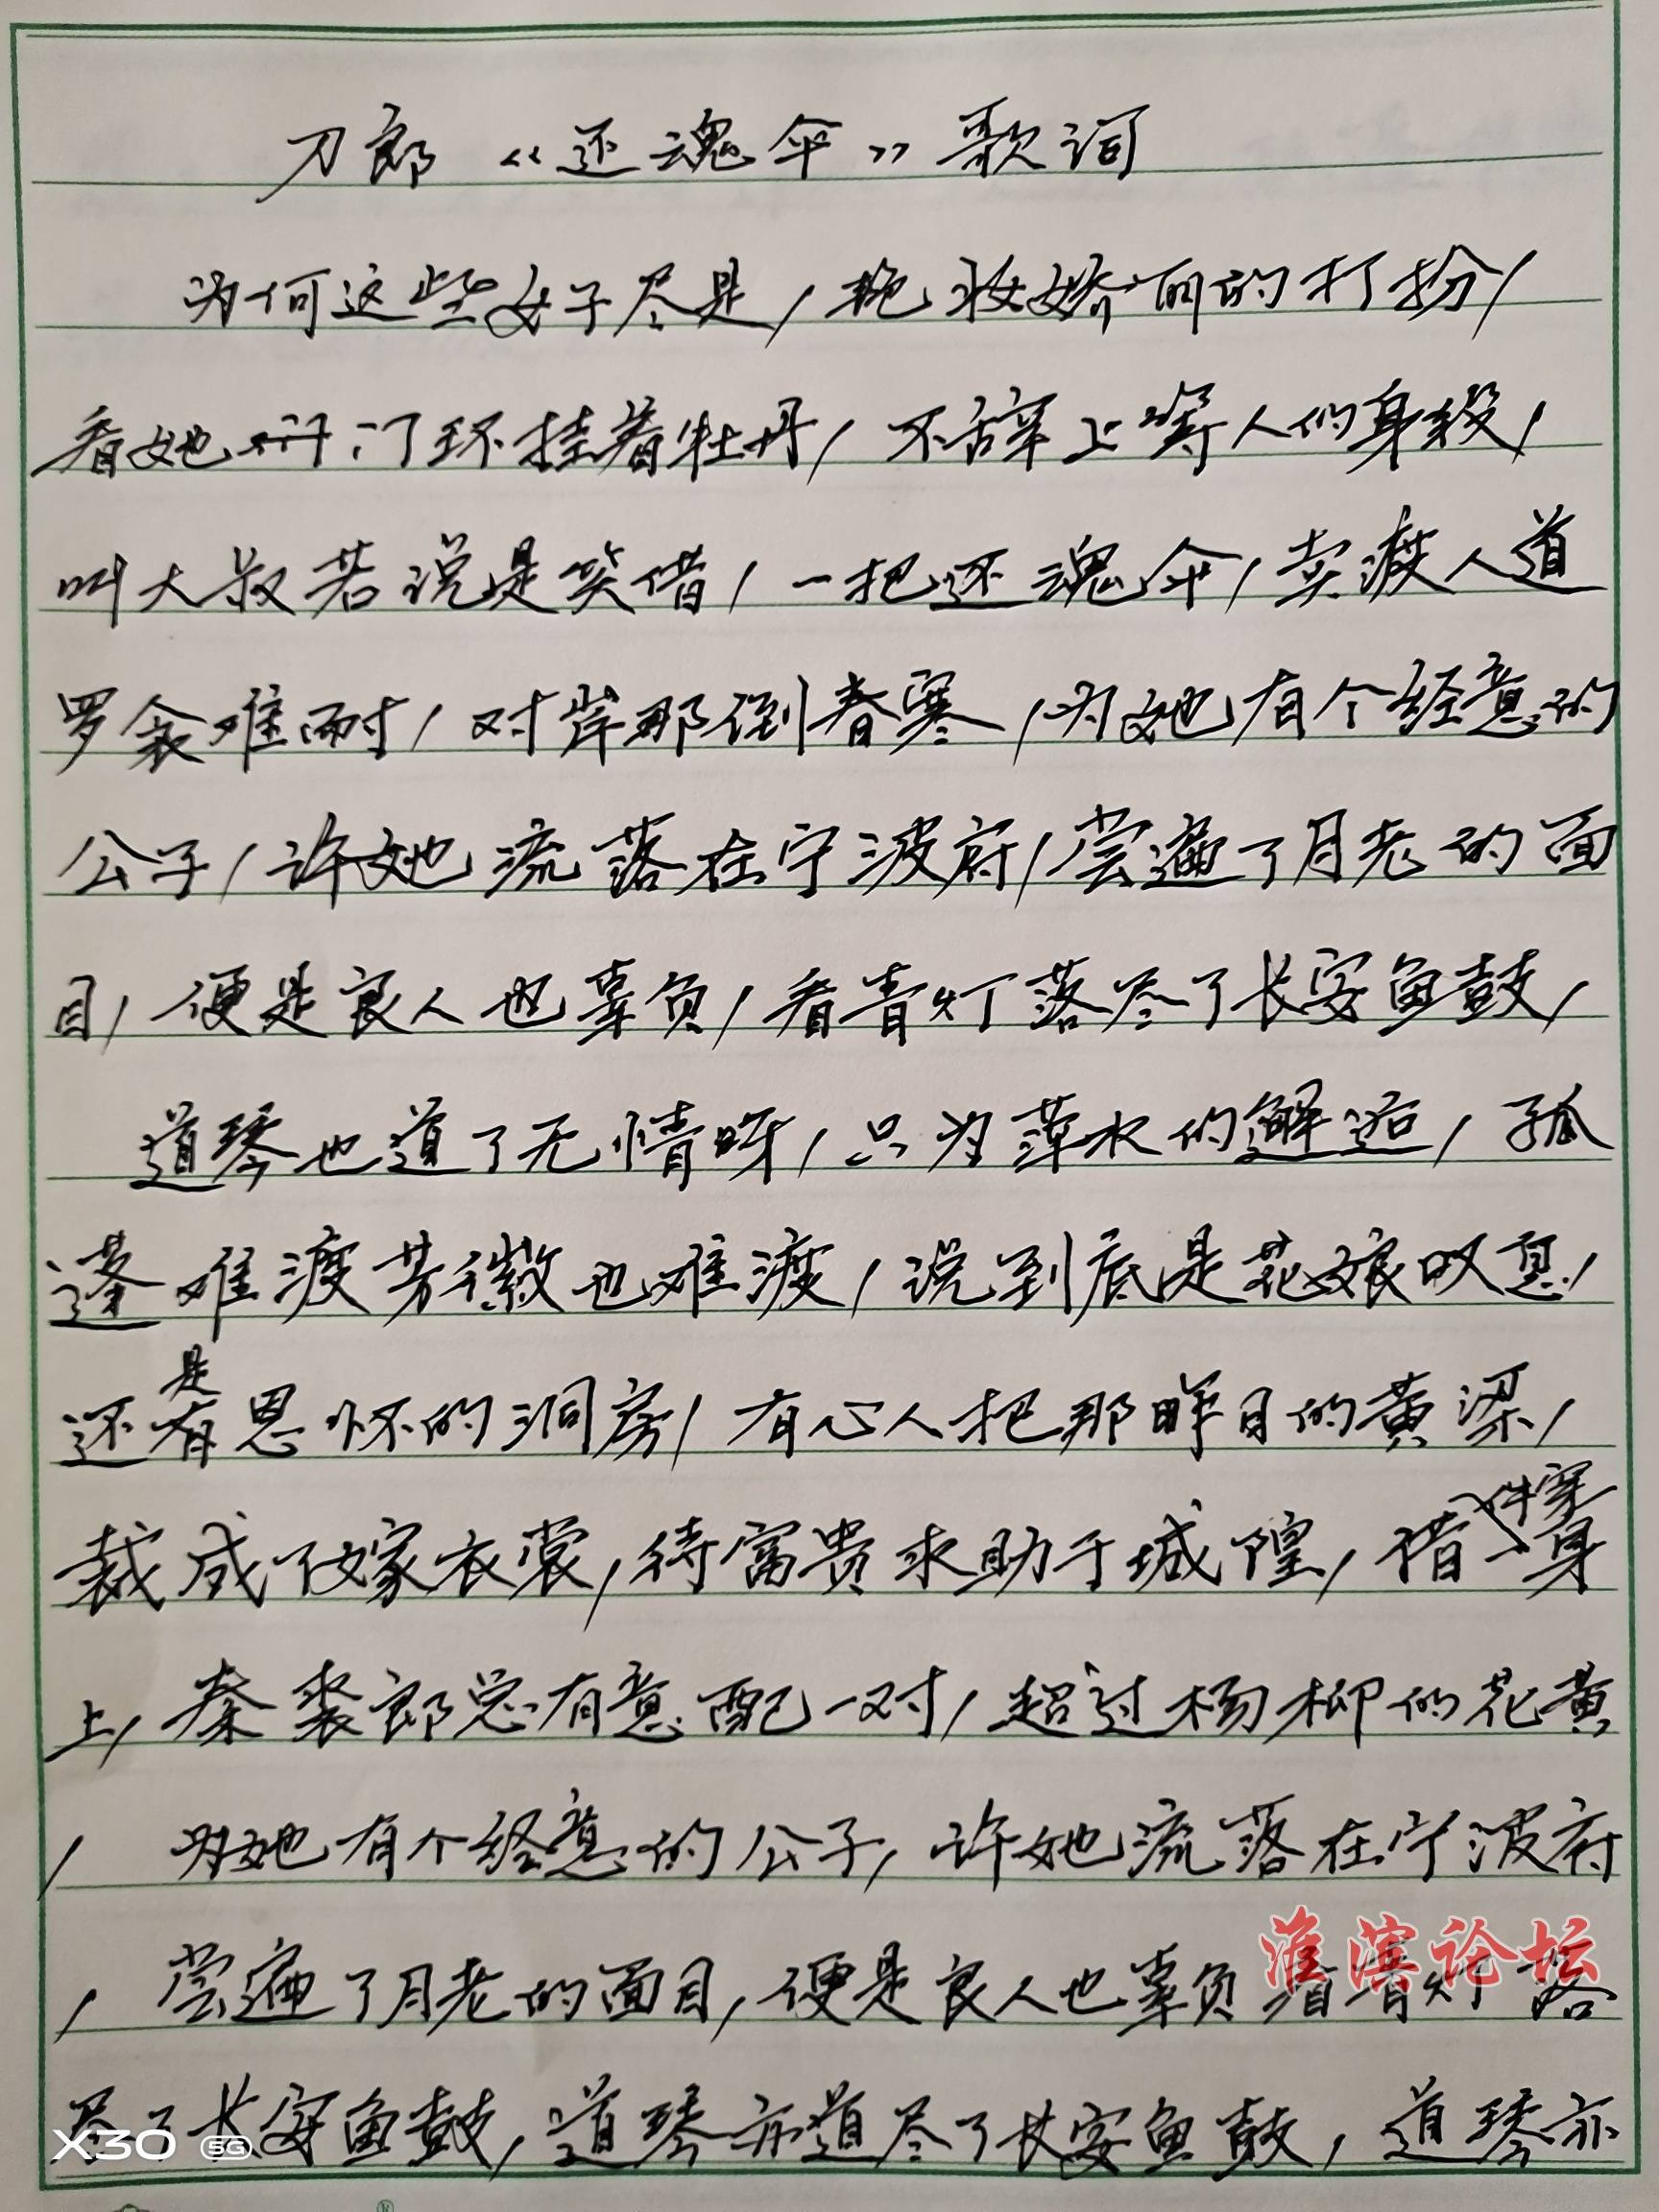 刀郎《还魂伞》歌词
为何这些女子尽是,艳妆娇丽的打扮,
看她 门环挂着牡丹,不辞上等人的身段,
叫大叔若说是笑借,一把还魂伞,卖渡人道
罗衾难耐,对岸那倒春寒,为她有个经意的
公子,许她流落在宁波府,尝遍了月老的面
目,便是良人也辜负,看青灯落尽了长安鱼鼓,
道琴也道了无情呀,只为萍水的邂逅,孤
蓬难渡芳徽也难渡,说到底是花娘叹息,
还是有恩怀的洞房,有心人把那昨日的黄梁,
裁成了嫁衣裳,待富贵求助于城隍,借一件穿身
上,秦裴郎总有意配一对,超过杨柳的花黄
,为她有个经意的公子,许她流落在宁波府
,尝遍了月老的面目,便是良人也辜负看青灯落
尽了长安鱼鼓,道琴亦道尽了长安鱼鼓,道琴亦
淮滨论坛
X30 5G